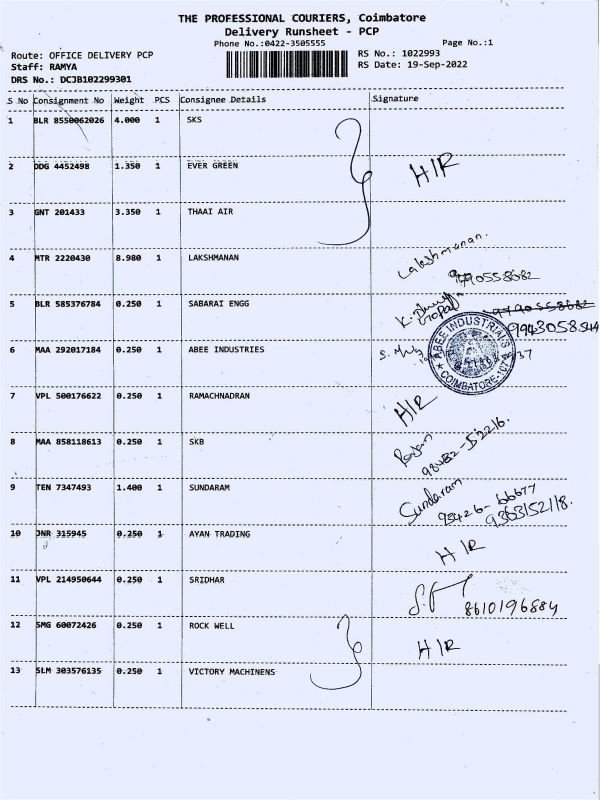 THE PROFESSIONAL COURIERS, Coimbatore
Delivery Runsheet - PCP
Phone No.:0422-3505555
Page No.:1
Route: OFFICE DELIVERY PCP
RS No.: 1022993
Staff: RAMYA
RS Date: 19-Sep-2022
DRS No.: DCJB102299301
S No Consignment No Weight PCS Consignee Details Signature
1 BLR 8550062026 4.000 1 SKS
2 DDG 4452498 1.350 1 EVER GREEN H/R
3 GNT 201433 3.350 1 THAAI AIR
4 MTR 2220430 8.980 1 LAKSHMANAN Lakshmanan.
9790558682
5 BLR 585376784 0.250 1 SABARAI ENGG K.
Gopal 9790558682
9943058544
6 MAA 292017184 0.250 1 ABEE INDUSTRIES S.
ABEE INDUSTRIES
COIMBATORE
37
7 VPL 500176622 0.250 1 RAMACHNADRAN H/R
8 MAA 858118613 0.250 1 SKB Rajan
98432-52216.
9 TEN 7347493 1.400 1 SUNDARAM Sundaram
98426-66677
9363152118.
10 JNR 315945 0.250 1 AYAN TRADING H/R
11 VPL 214950644 0.250 1 SRIDHAR
8610196884
12 SMG 60072426 0.250 1 ROCK WELL H/R
13 SLM 303576135 0.250 1 VICTORY MACHINENS